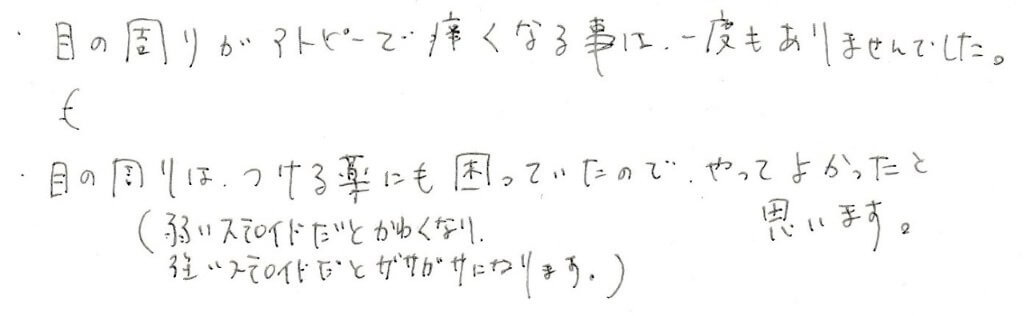 ・目の周りがアトピーで痒くなる事は、一度もありませんでした。
・目の周りは、つける薬にも困っていたので、やってよかったと
思います。
(弱いステロイドだとかゆくなり、
強いステロイドだとガサガサになります。)